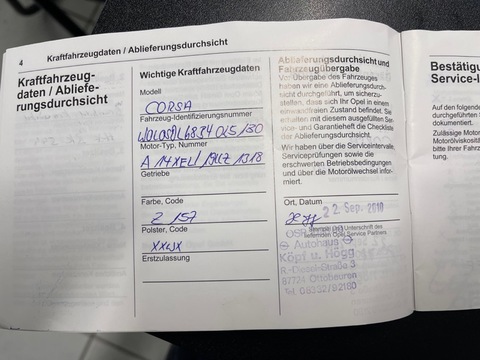 4 Kraftfahrzeugdaten / Ablieferungsdurchsicht
Kraftfahrzeug-
daten / Abliefe-
rungsdurchsicht
Wichtige Kraftfahrzeugdaten
Modell
CORSA
Fahrzeug-Identifizierungsnummer
Motor-Typ, Nummer
A 14XEL /
Getriebe
Farbe, Code
Z 157
Polster, Code
Erstzulassung
Ablieferungsdurchsicht und
Fahrzeugübergabe
Vor Übergabe des Fahrzeuges
haben wir eine Ablieferungs-
durchsicht durchgeführt, um sicherzu-
stellen, dass sich Ihr Opel in einem
einwandfreien Zustand befindet. Sie
erhalten mit diesem ausgefüllten Ser-
vice- und Garantieheft die Checkliste
der Ablieferungsdurchsicht.
Wir haben über die Serviceintervalle,
Serviceprüfungen sowie die
erschwerten Betriebsbedingungen
und über die Motorölwechsel infor-
miert.
Ort, Datum
22. Sep. 2010
Stempel und Unterschrift des
liefernden Opel Service Partners
Autohaus
Köpf u. Högg
R.-Diesel-Straße 3
87724 Ottobeuren
Tel. 08332/92180
Bestätigu
Service-I
Auf den folgende
durchgeführten S
dokumentiert.
Zulässige Motor
Motorölviskositä
bitte Ihrer Fahrz
tung.